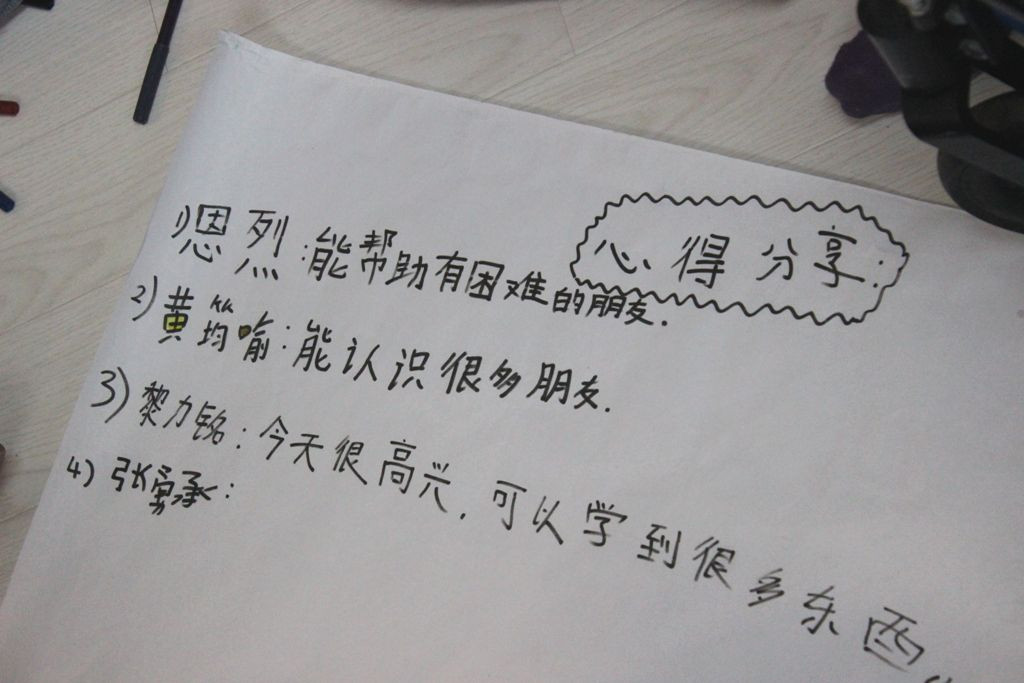 心得分享:
1) 恩烈:能帮助有困难的朋友.
2) 黄筠喻:能认识很多朋友.
3) 黎力铭:今天很高兴,可以学到很多东西
4) 张勇承: